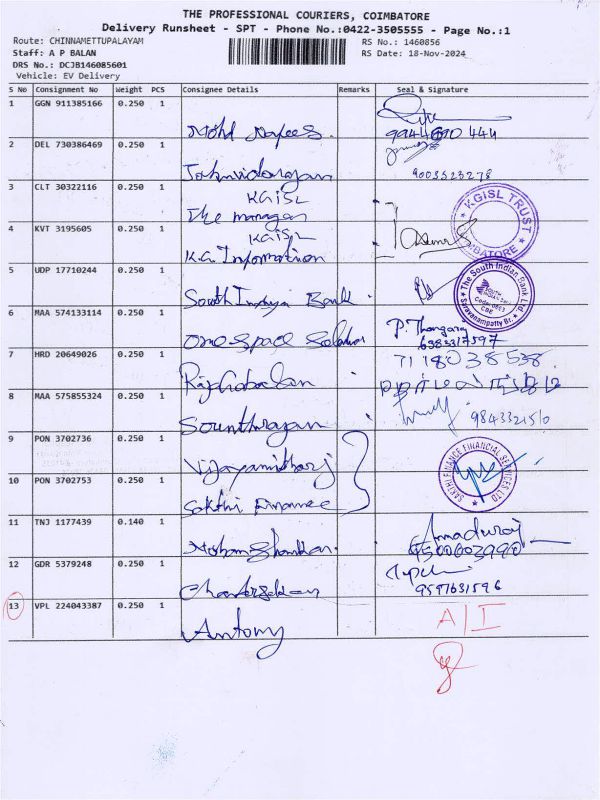 THE PROFESSIONAL COURIERS, COIMBATORE
Delivery Runsheet - SPT - Phone No.:0422-3505555 - Page No.:1
Route: CHINNAMETTUPALAYAM
RS No.: 1460856
Staff: A P BALAN
RS Date: 18-Nov-2024
DRS No.: DCJB146085601
Vehicle: EV Delivery
S No Consignment No Weight PCS Consignee Details Remarks Seal & Signature
1 GGN 911385166 0.250 1 Mohd Nafees
2 DEL 730386469 0.250 1
9003523278
3 CLT 30322116 0.250 1 KGISL
The manager
KGISL TRUST
4 KVT 3195605 0.250 1 KGISL
K.G. Information
5 UDP 17710244 0.250 1 South India Bank
The South Indian Bank Ltd
Saravanampatty Br.
6 MAA 574133114 0.250 1 One space
P. Thangaraj
6383317597
7 HRD 20649026 0.250 1
7118038538
8 MAA 575855324 0.250 1 Sounthrajan
9843321510
9 PON 3702736 0.250 1
10 PON 3702753 0.250 1 Sakthi Finance
SAKTHI FINANCE FINANCIAL SERVICES LTD
11 TNJ 1177439 0.140 1 Mohan Shankar
Annadurai
12 GDR 5379248 0.250 1
9597631596
13 VPL 224043387 0.250 1 Antony
A/I